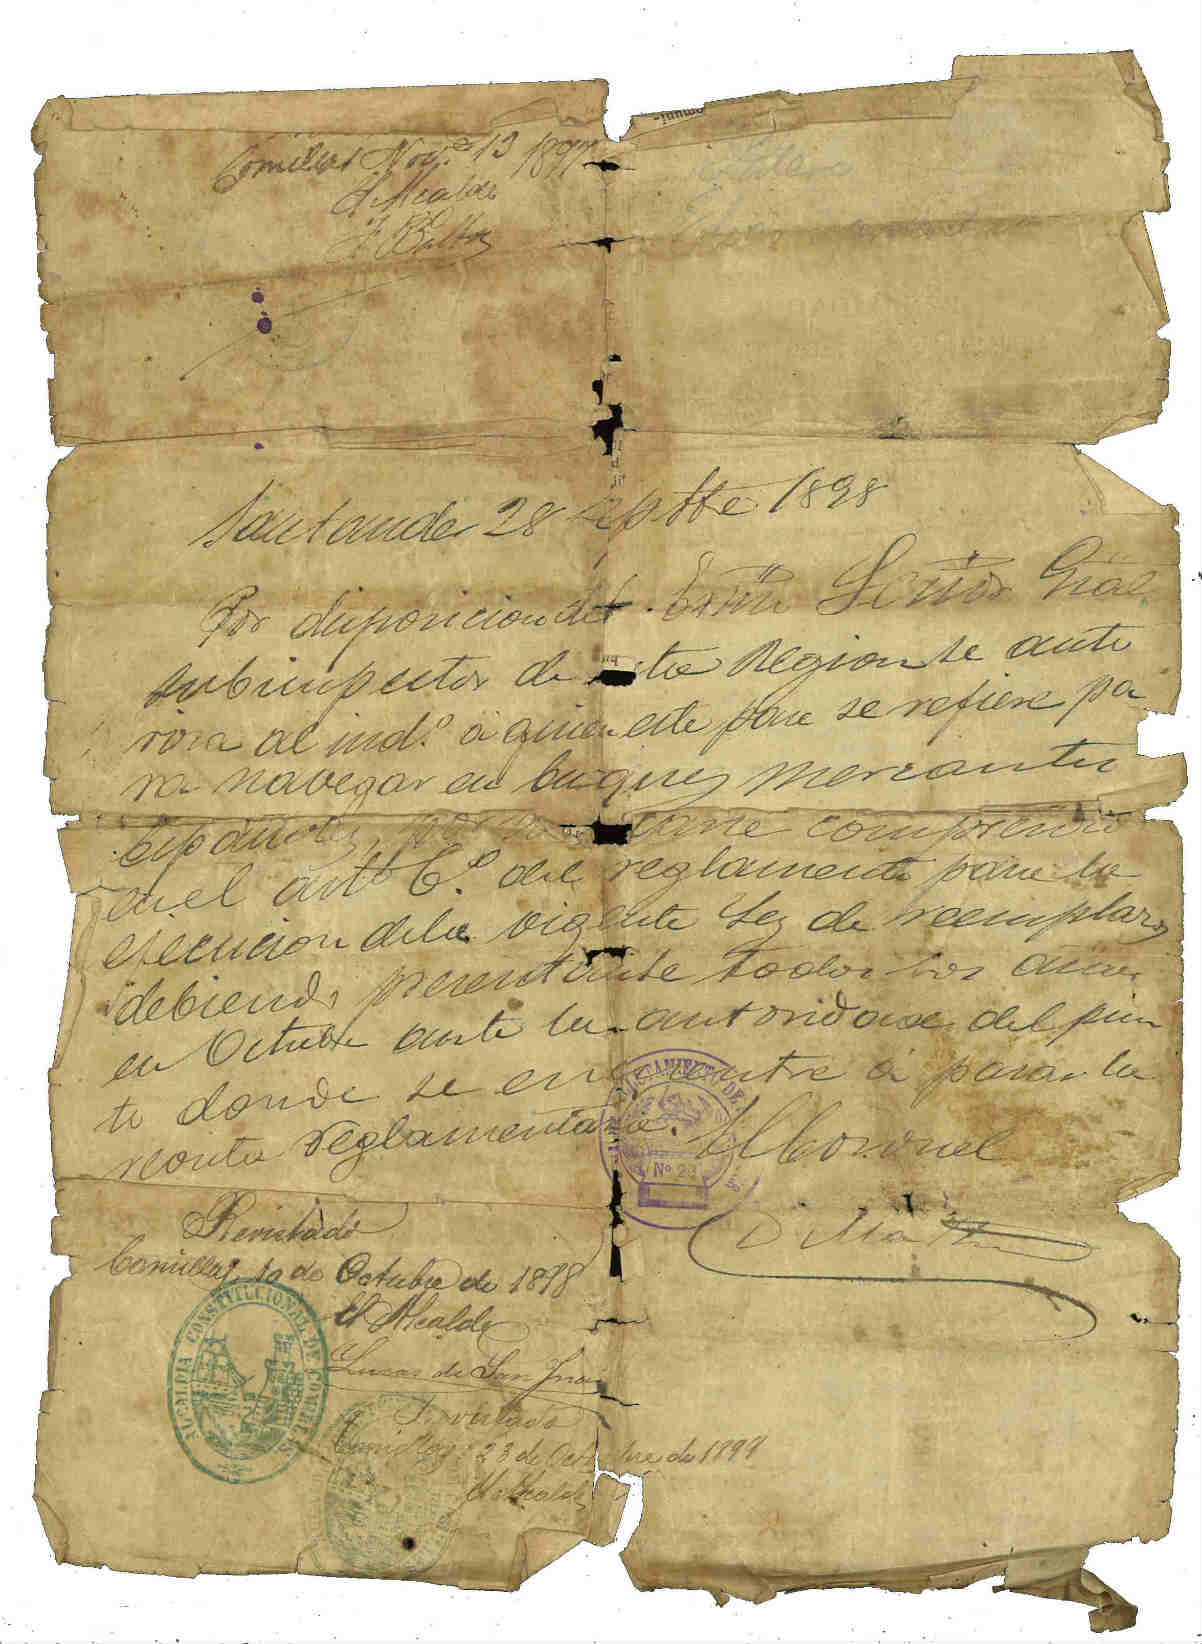 Comillas Nov.e 13 1897
El Alcalde
Santander 28 Septbre 1898
Por disposicion del Excmo Señor Gral
subinspector de esta Region se auto
riza al ind.º á quien este pase se refiere pa
ra navegar en buques mercantes
españoles, por hallarse comprendido
en el artº 6.º del reglamento para la
ejecucion de la vigente Ley de reemplazos
debiendo presentarse todos los años
en Octubre ante la autoridad del pun
to donde se encuentre á pasar la
revista reglamentaria.
El Coronel
AYUNTAMIENTO DE
Nº 23
Revistado
Comillas, 10 de Octubre de 1898
El Alcalde
Lucas de San Juan
ALCALDIA CONSTITUCIONAL DE COMILLAS
Revistado
Comillas 23 de Octubre de 1899
El Alcalde